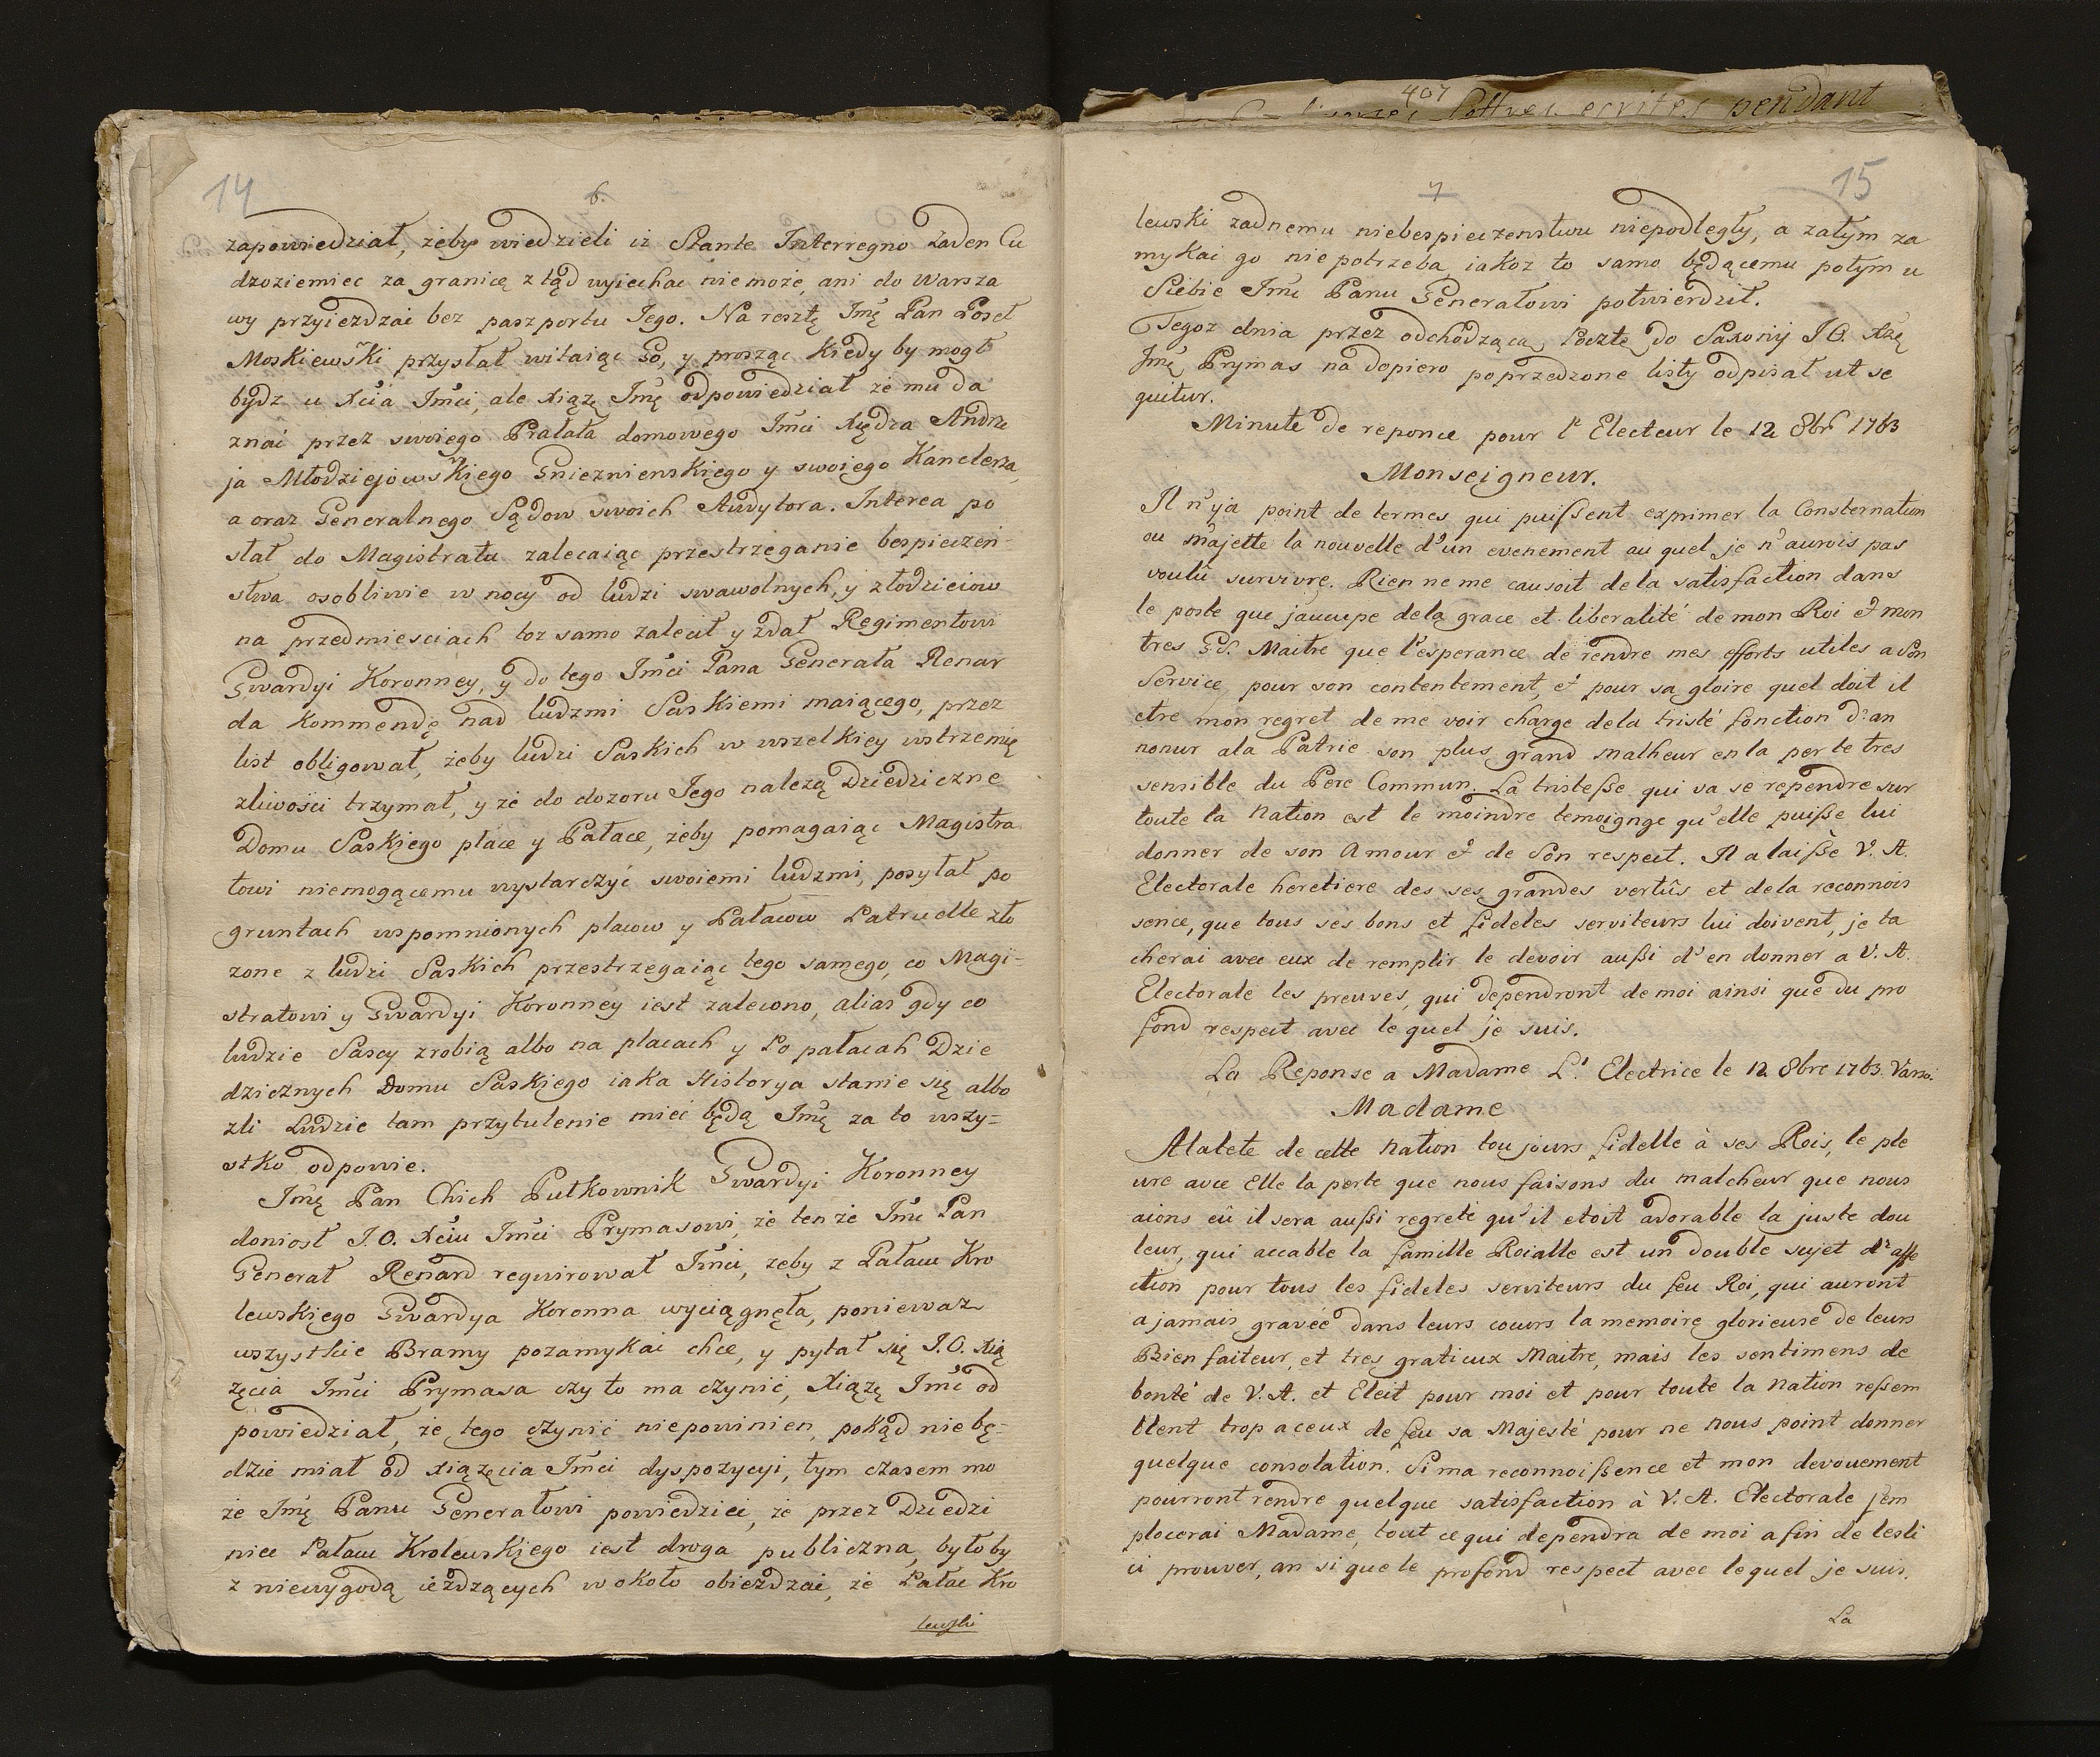 14
6.
zapowiedział, żeby wiedzieli iż Stante Interregno Żaden Cu
dzoziemiec za granicę z tąd wyiechac nie może, ani do Warsza
wy przyiezdzai bez paszportu Jego. Na resztę Imę Pan Poseł
Moskiewski przysłał witaiąc Go, y prosząc kiedy by mogł
bydz u Xcia Imci, ale Xiążę Imę odpowiedział że mu da
znać przez swoiego Prałata domowego Imci Xiędza Andrze
ja Młodziejowskiego Gnieznienskiego y swoiego Kanclerza,
a oraz Generalnego Sądow swoich Audytora. Interea po
słał do Magistratu zalecaiąc przestrzeganie bespieczeń-
stwa osobliwie w nocy od ludzi swawolnych, y złodzieiow
na przedmiesciach toż samo zalecił y zdał Regimentowi
Gwardyi Koronney, y do tego Imci Pana Generała Renar
da Kommendę nad ludzmi Saskiemi maiącego, przez
list obligował, żeby ludzi Saskich w wszelkiey wstrzemię
zliwości trzymał, y że do dozoru Jego nalezą Dziedziczne
Domu Saskiego place y Pałace, żeby pomagaiąc Magistra
towi niemogącemu wystarczyć swoiemi ludzmi, posyłał po
gruntach wspomnionych placow y Pałacow Patruelle zło
zone z ludzi Saskich przestrzegaiąc tego samego, co Magi-
stratowi y Gwardyi Koronney iest zalecono, alias gdy co
ludzie Sascy zrobią albo na placach y Po pałacah Dzie
dzicznych Domu Saskiego iaka Historya stanie się albo
zli Ludzie tam przytulenie mieć będą Imę za to wszy=
stko odpowie.
Imę Pan Chich Pułkownik Gwardyi Koronney
doniosł J.O. Xciu Imci Prymasowi, że tenże Imc Pan
Generał Renard requirował Imci, żeby z Pałacu Kro
lewskiego Gwardya Koronna wyciągnęła, ponieważ
wszystkie Bramy pozamykai chce, y pytał się J.O. Xią
zęcia Imci Prymasa czy to ma czynić, Xiążę Imc od
powiedział, że tego czynić niepowinien, pokąd nie bę=
dzie miał od Xiązęcia Imci dyspozycyi, tym czasem mo
że Imę Panu Generałowi powiedziei, że przez Dziedzi
niec Pałacu Krolewskiego iest droga publiczna, byłoby
z niewygodą ieżdzących w około obieżdzai, że Pałac Kro
lewski
407
Lettres ecrites pendant
15
7
lewski żadnemu niebespieczenstwu niepodległy, a zatym za
mykai go niepotrzeba, iakoz to samo będącemu potym u
Siebie Imc Panu Generałowi potwierdził.
Tegoz dnia przez odchodzącą Pocztę do Saxonij J.O. Xżę
Imę Prymas na dopiero poprzedzone listy odpisał ut se
quitur.
Minute de reponce pour l'Electeur le 12 8br 1763
Monseigneur.
Il n'ya point de termes qui puissent exprimer la Consternation
ou m'ajette la nouvelle d'un evenement au quel je n'aurois pas
voulû survivre. Rien ne me causoit dela satisfaction dans
le poste que joccupe dela grace et liberalité de mon Roi et mon
tres Gd. Maitre que l'esperance de rendre mes efforts utiles a son
Service, pour son contentement, et pour sa gloire quel doit il
etre mon regret de me voir charge dela tristé fonction d'an
nonur ala Patrie son plus grand malheur en la perte tres
sensible du Pere Commun. La tristesse qui va se rependre sur
toute la Nation est le moindre temoignge qu'elle puisse lui
donner de son Amour et de son respect. Il a laissè V. A.
Electorale heretiere des ses grandes vertûs et dela reconnois
sence, que tous ses bons et fideles serviteurs lui doivent, je ta
cherai avec eux de remplir le devoir aussi d'en donner a V. A.
Electorale les preuves, qui dependront de moi ainsi que du pro
fond respect avec le quel je suis.
La Reponse a Madame L' Electrice le 12 8bre 1763. Varso.
Madame
Alatete de cette Nation toujours fidelle à ses Rois, le ple
ure avec Elle la perte que nous faisons du malcheur que nous
aions eû il sera aussi regreté qu'il etoit adorable la juste dou
leur, qui accable la famille Roialle est un double sujet d'affe
ction pour tous les fideles serviteurs du feu Roi, qui auront
a jamais gravéé dans leurs cœurs la memoire glorieuse de leurs
Bienfaiteur, et tres gratieux Maitre, mais les sentimens de
bonté de V. A. et Eleit pour moi et pour toute la Nation ressem
blent trop a ceux de feu sa Majesté pour ne nous point donner
quelque consolation. Si ma reconnoissence et mon devouement
pourront rendre quelque satisfaction à V. A. Electorale j'em
plocerai Madame, tout ce qui dependra de moi a fin de lesli
ci prouver, an si que le profond respect avec lequel je suis.
La